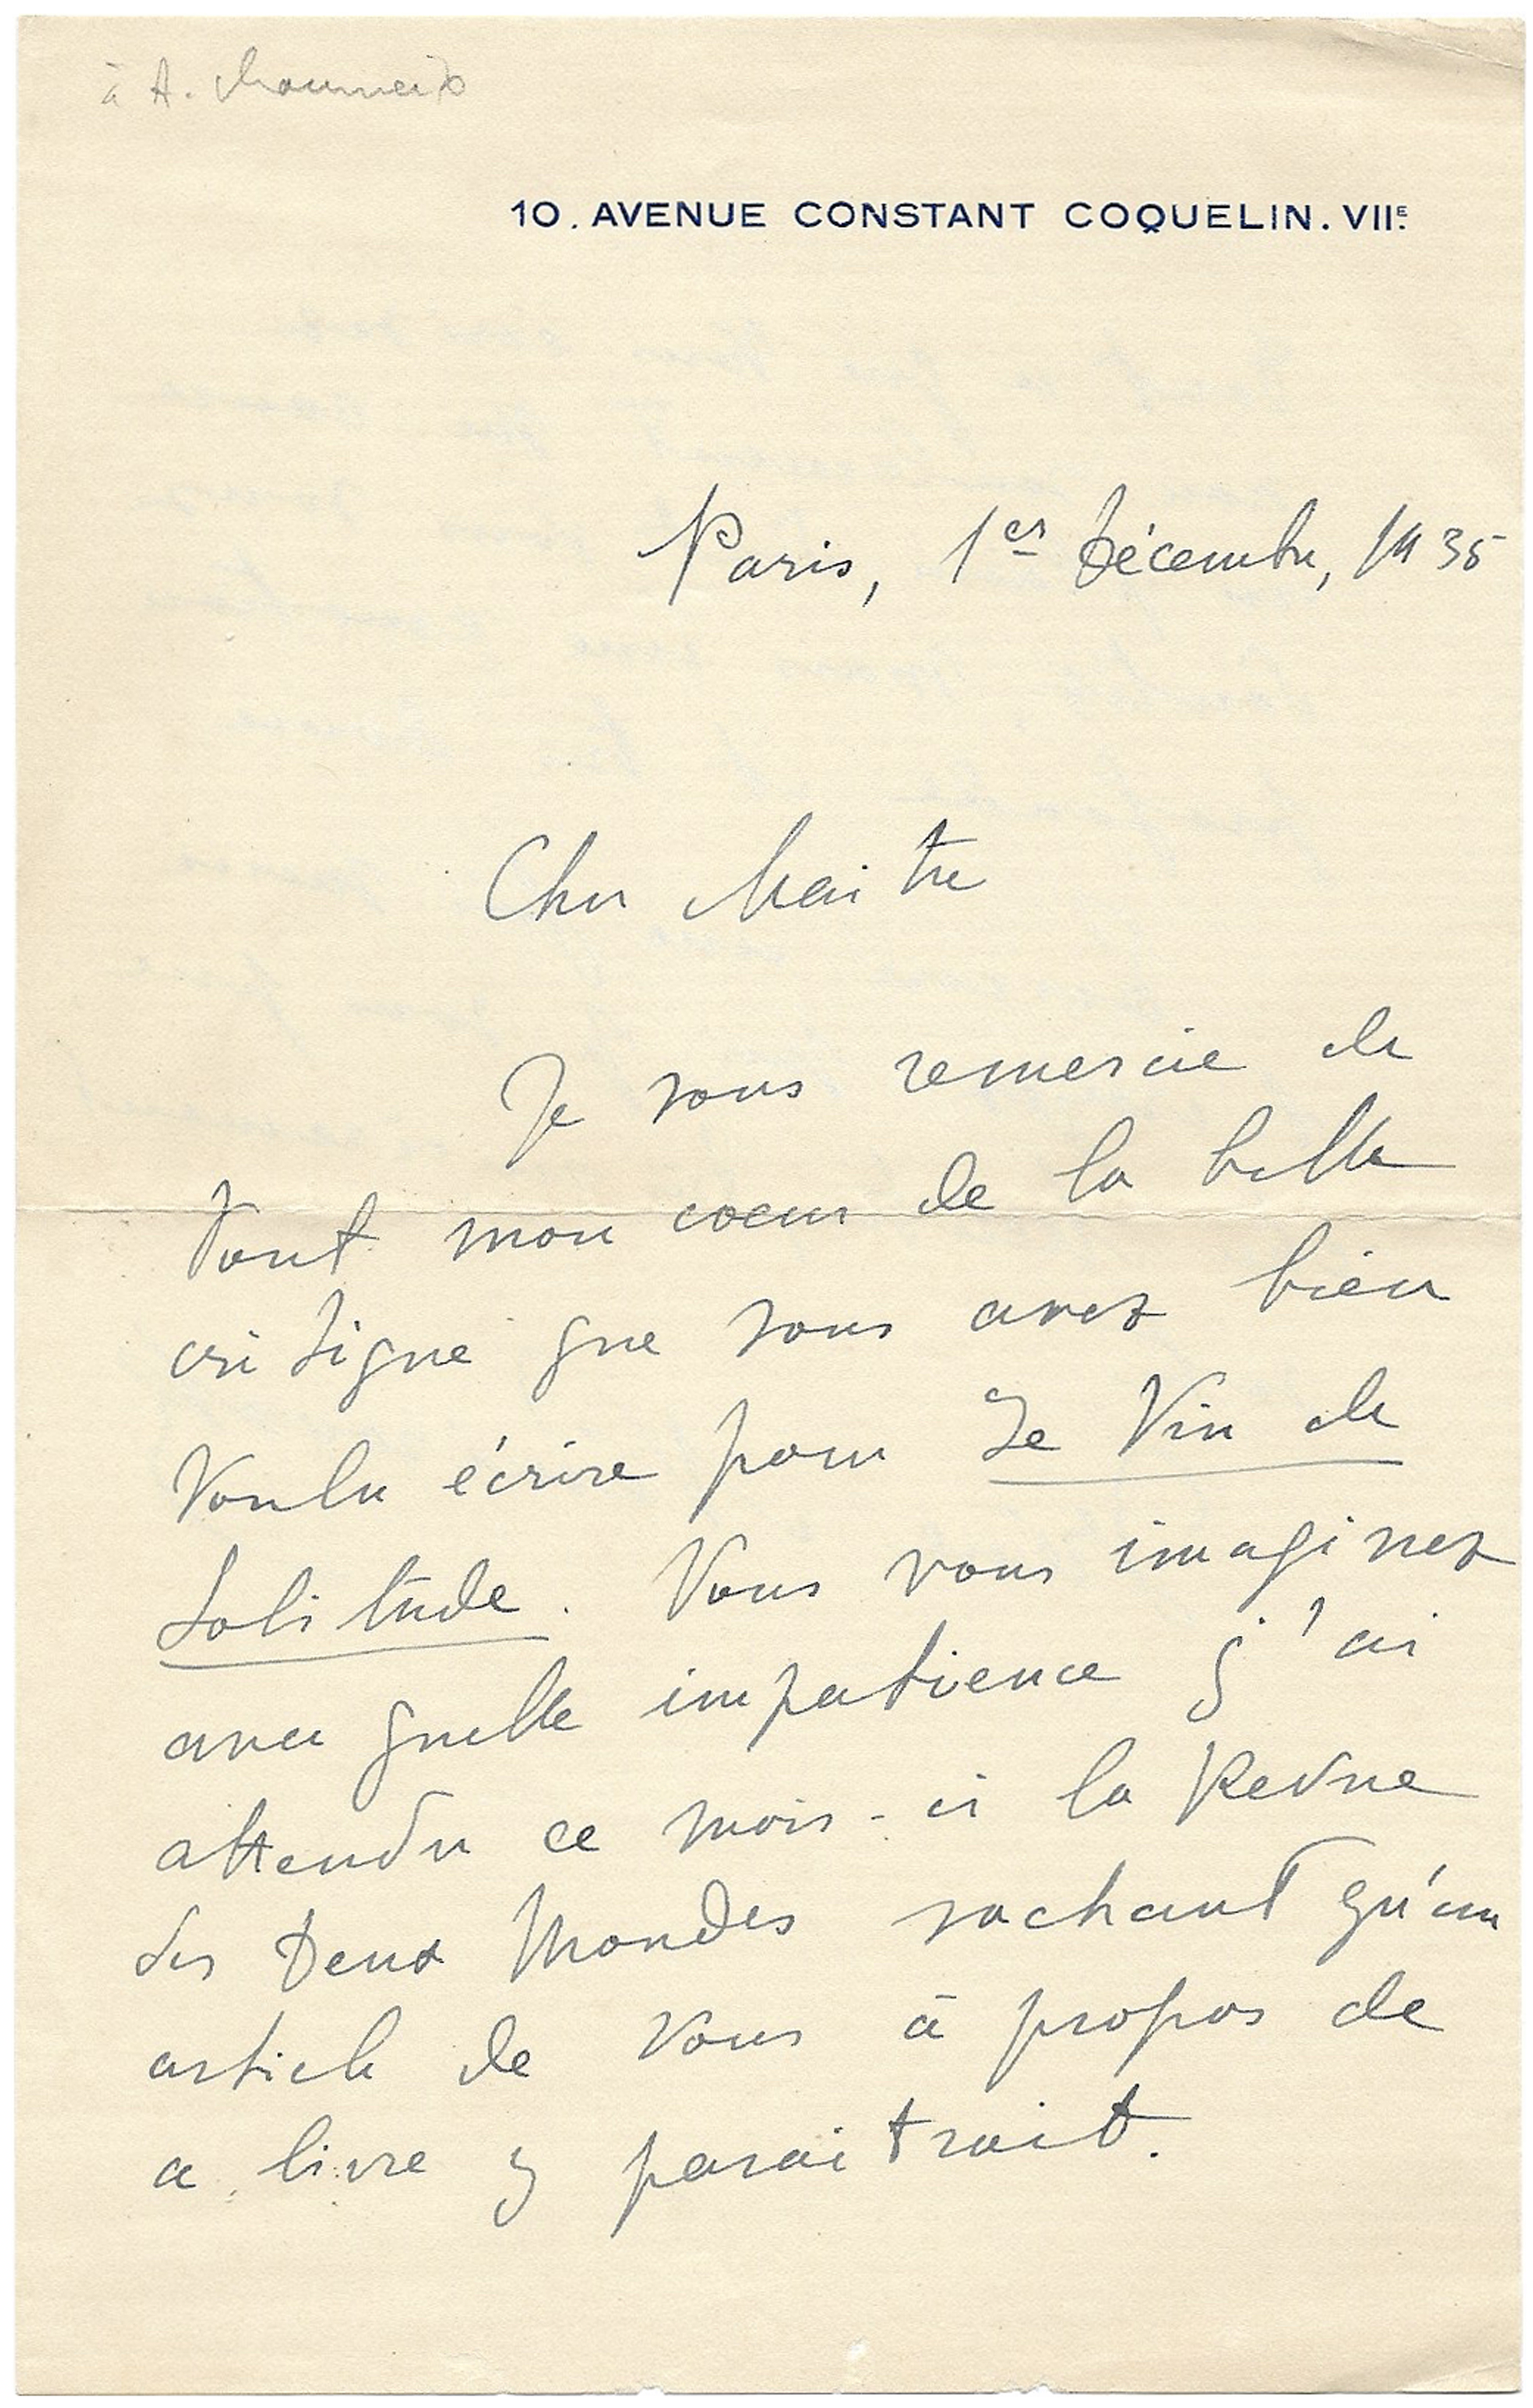 à A. Chaumeix
10. AVENUE CONSTANT COQUELIN. VIIE.
Paris, 1er Décembre, 1935
Cher Maitre
Je vous remercie de
tout mon coeur de la belle
critique que vous avez bien
voulu écrire pour Le Vin de
Solitude. Vous vous imaginez
avec quelle impatience j'ai
attendu ce mois-ci la Revue
des Deux Mondes sachant qu'un
article de vous à propos de
ce livre y paraitrait.